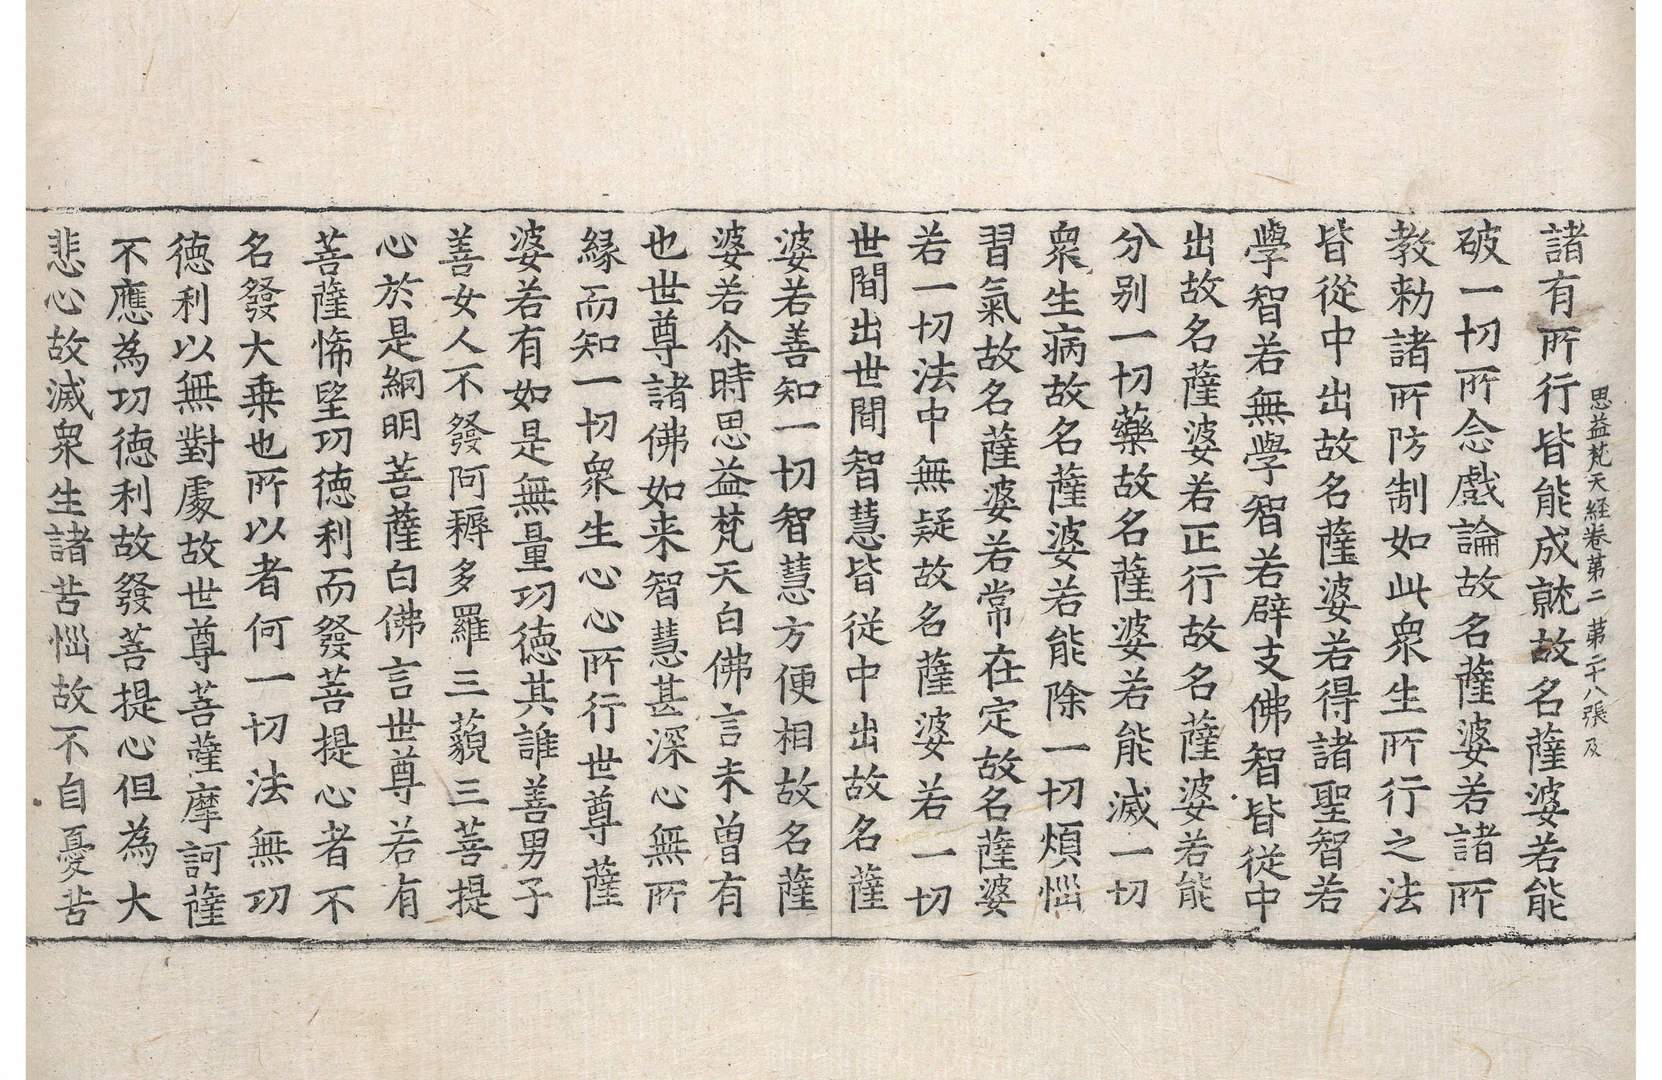 思益梵天経卷第二　第二十八張　及
諸有所行皆能成就故名薩婆若能
破一切所念戲論故名薩婆若諸所
教勑諸所防制如此衆生所行之法
皆從中出故名薩婆若得諸聖智若
學智若無學智若辟支佛智皆從中
出故名薩婆若正行故名薩婆若能
分別一切藥故名薩婆若能滅一切
衆生病故名薩婆若能除一切煩惱
習氣故名薩婆若常在定故名薩婆
若一切法中無疑故名薩婆若一切
世間出世間智慧皆從中出故名薩
婆若善知一切智慧方便相故名薩
婆若尒時思益梵天白佛言未曾有
也世尊諸佛如来智慧甚深心無所
緣而知一切衆生心心所行世尊薩
婆若有如是無量功德其誰善男子
善女人不發阿耨多羅三藐三菩提
心於是網明菩薩白佛言世尊若有
菩薩悕望功德利而發菩提心者不
名發大乗也所以者何一切法無功
德利以無對處故世尊菩薩摩訶薩
不應為功德利故發菩提心但為大
悲心故滅衆生諸苦惱故不自憂苦